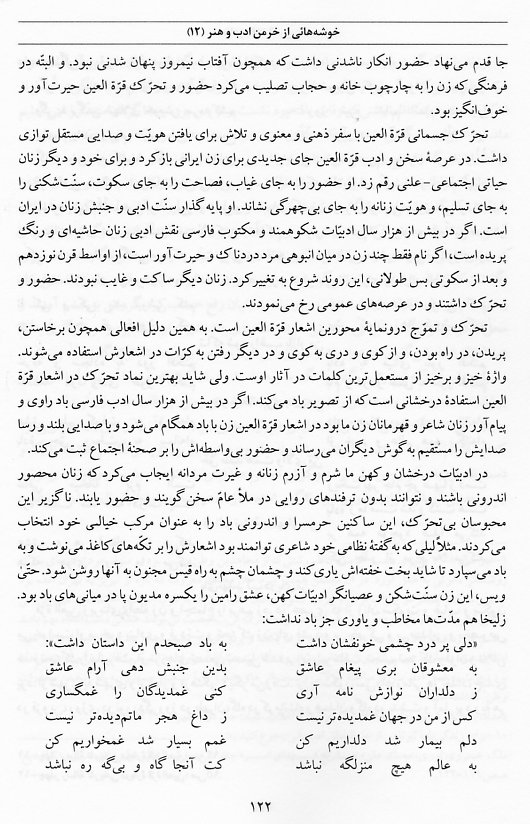 خوشه‌هائی از خرمن ادب و هنر (۱۲)
جا قدم می‌نهاد حضور انکار ناشدنی داشت که همچون آفتاب نیمروز پنهان شدنی نبود. و البتّه در
فرهنگی که زن را به چارچوب خانه و حجاب تصلیب می‌کرد حضور و تحرّک قرّة العین حیرت‌آور و
خوف‌انگیز بود.
تحرّک جسمانی قرّة العین با سفر ذهنی و معنوی و تلاش برای یافتن هویّت و صدایی مستقل توازی
داشت. در عرصهٔ سخن و ادب قرّة العین جای جدیدی برای زن ایرانی بازکرد و برای خود و دیگر زنان
حیاتی اجتماعی-علنی رقم زد. او حضور را به جای غیاب، فصاحت را به جای سکوت، سنّت‌شکنی را
به جای تسلیم، و هویّت زنانه را به جای بی‌چهرگی نشاند. او پایه گذار سنّت ادبی و جنبش زنان در ایران
است. اگر در بیش از هزار سال ادبیّات شکوهمند و مکتوب فارسی نقش ادبی زنان حاشیه‌ای و رنگ
پریده است، اگر نام فقط چند زن در میان انبوهی مرد دردناک و حیرت‌آور است، از اواسط قرن نوزدهم
و بعد از سکوتی بس طولانی، این روند شروع به تغییر کرد. زنان دیگر ساکت و غایب نبودند. حضور و
تحرّک داشتند و در عرصه‌های عمومی رخ می‌نمودند.
تحرّک و تموّج درونمایهٔ محورین اشعار قرّة العین است. به همین دلیل افعالی همچون برخاستن،
پریدن، در راه بودن، و از کوی و دری به کوی و در دیگر رفتن به کرّات در اشعارش استفاده می‌شوند.
واژهٔ خیز و برخیز از مستعمل‌ترین کلمات در آثار اوست. ولی شاید بهترین نماد تحرّک در اشعار قرّة
العین استفادهٔ درخشانی است که از تصویر باد می‌کند. اگر در بیش از هزار سال ادب فارسی باد راوی و
پیام‌آور زنان شاعر و قهرمانان زن ما بود در اشعار قرّة العین زن با باد همگام می‌شود و با صدایی بلند و رسا
صدایش را مستقیم به گوش دیگران می‌رساند و حضور بی‌واسطه‌اش را بر صحنهٔ اجتماع ثبت می‌کند.
در ادبیّات درخشان و کهن ما شرم و آزرم زنانه و غیرت مردانه ایجاب می‌کرد که زنان محصور
اندرونی باشند و نتوانند بدون ترفندهای روایی در ملأ عامّ سخن گویند و حضور یابند. ناگزیر این
محبوسان بی‌تحرّک، این ساکنین حرمسرا و اندرونی باد را به عنوان مرکب خیالی خود انتخاب
می‌کردند. مثلاً لیلی که به گفتهٔ نظامی خود شاعری توانمند بود اشعارش را بر تکّه‌های کاغذ می‌نوشت و به
باد می‌سپارد تا شاید بخت خفته‌اش یاری کند و چشمان چشم به راه قیس مجنون به آنها روشن شود. حتّیٰ
ویس، این زن سنّت‌شکن و عصیانگر ادبیّات کهن، عشق رامین را یکسره مدیون پا در میانی‌های باد بود.
زلیخا هم مدّت‌ها مخاطب و یاوری جز باد نداشت:
«دلی پر درد چشمی خونفشان داشت به باد صبحدم این داستان داشت»:
به معشوقان بری پیغام عاشق بدین جنبش دهی آرام عاشق
ز دلداران نوازش نامه آری کنی غمدیدگان را غمگساری
کس از من در جهان غمدیده‌تر نیست ز داغ هجر ماتم‌دیده‌تر نیست
دلم بیمار شد دلداریم کن غمم بسیار شد غمخواریم کن
به عالم هیچ منزلگه نباشد کت آنجا گاه و بی‌گه ره نباشد
۱۲۲